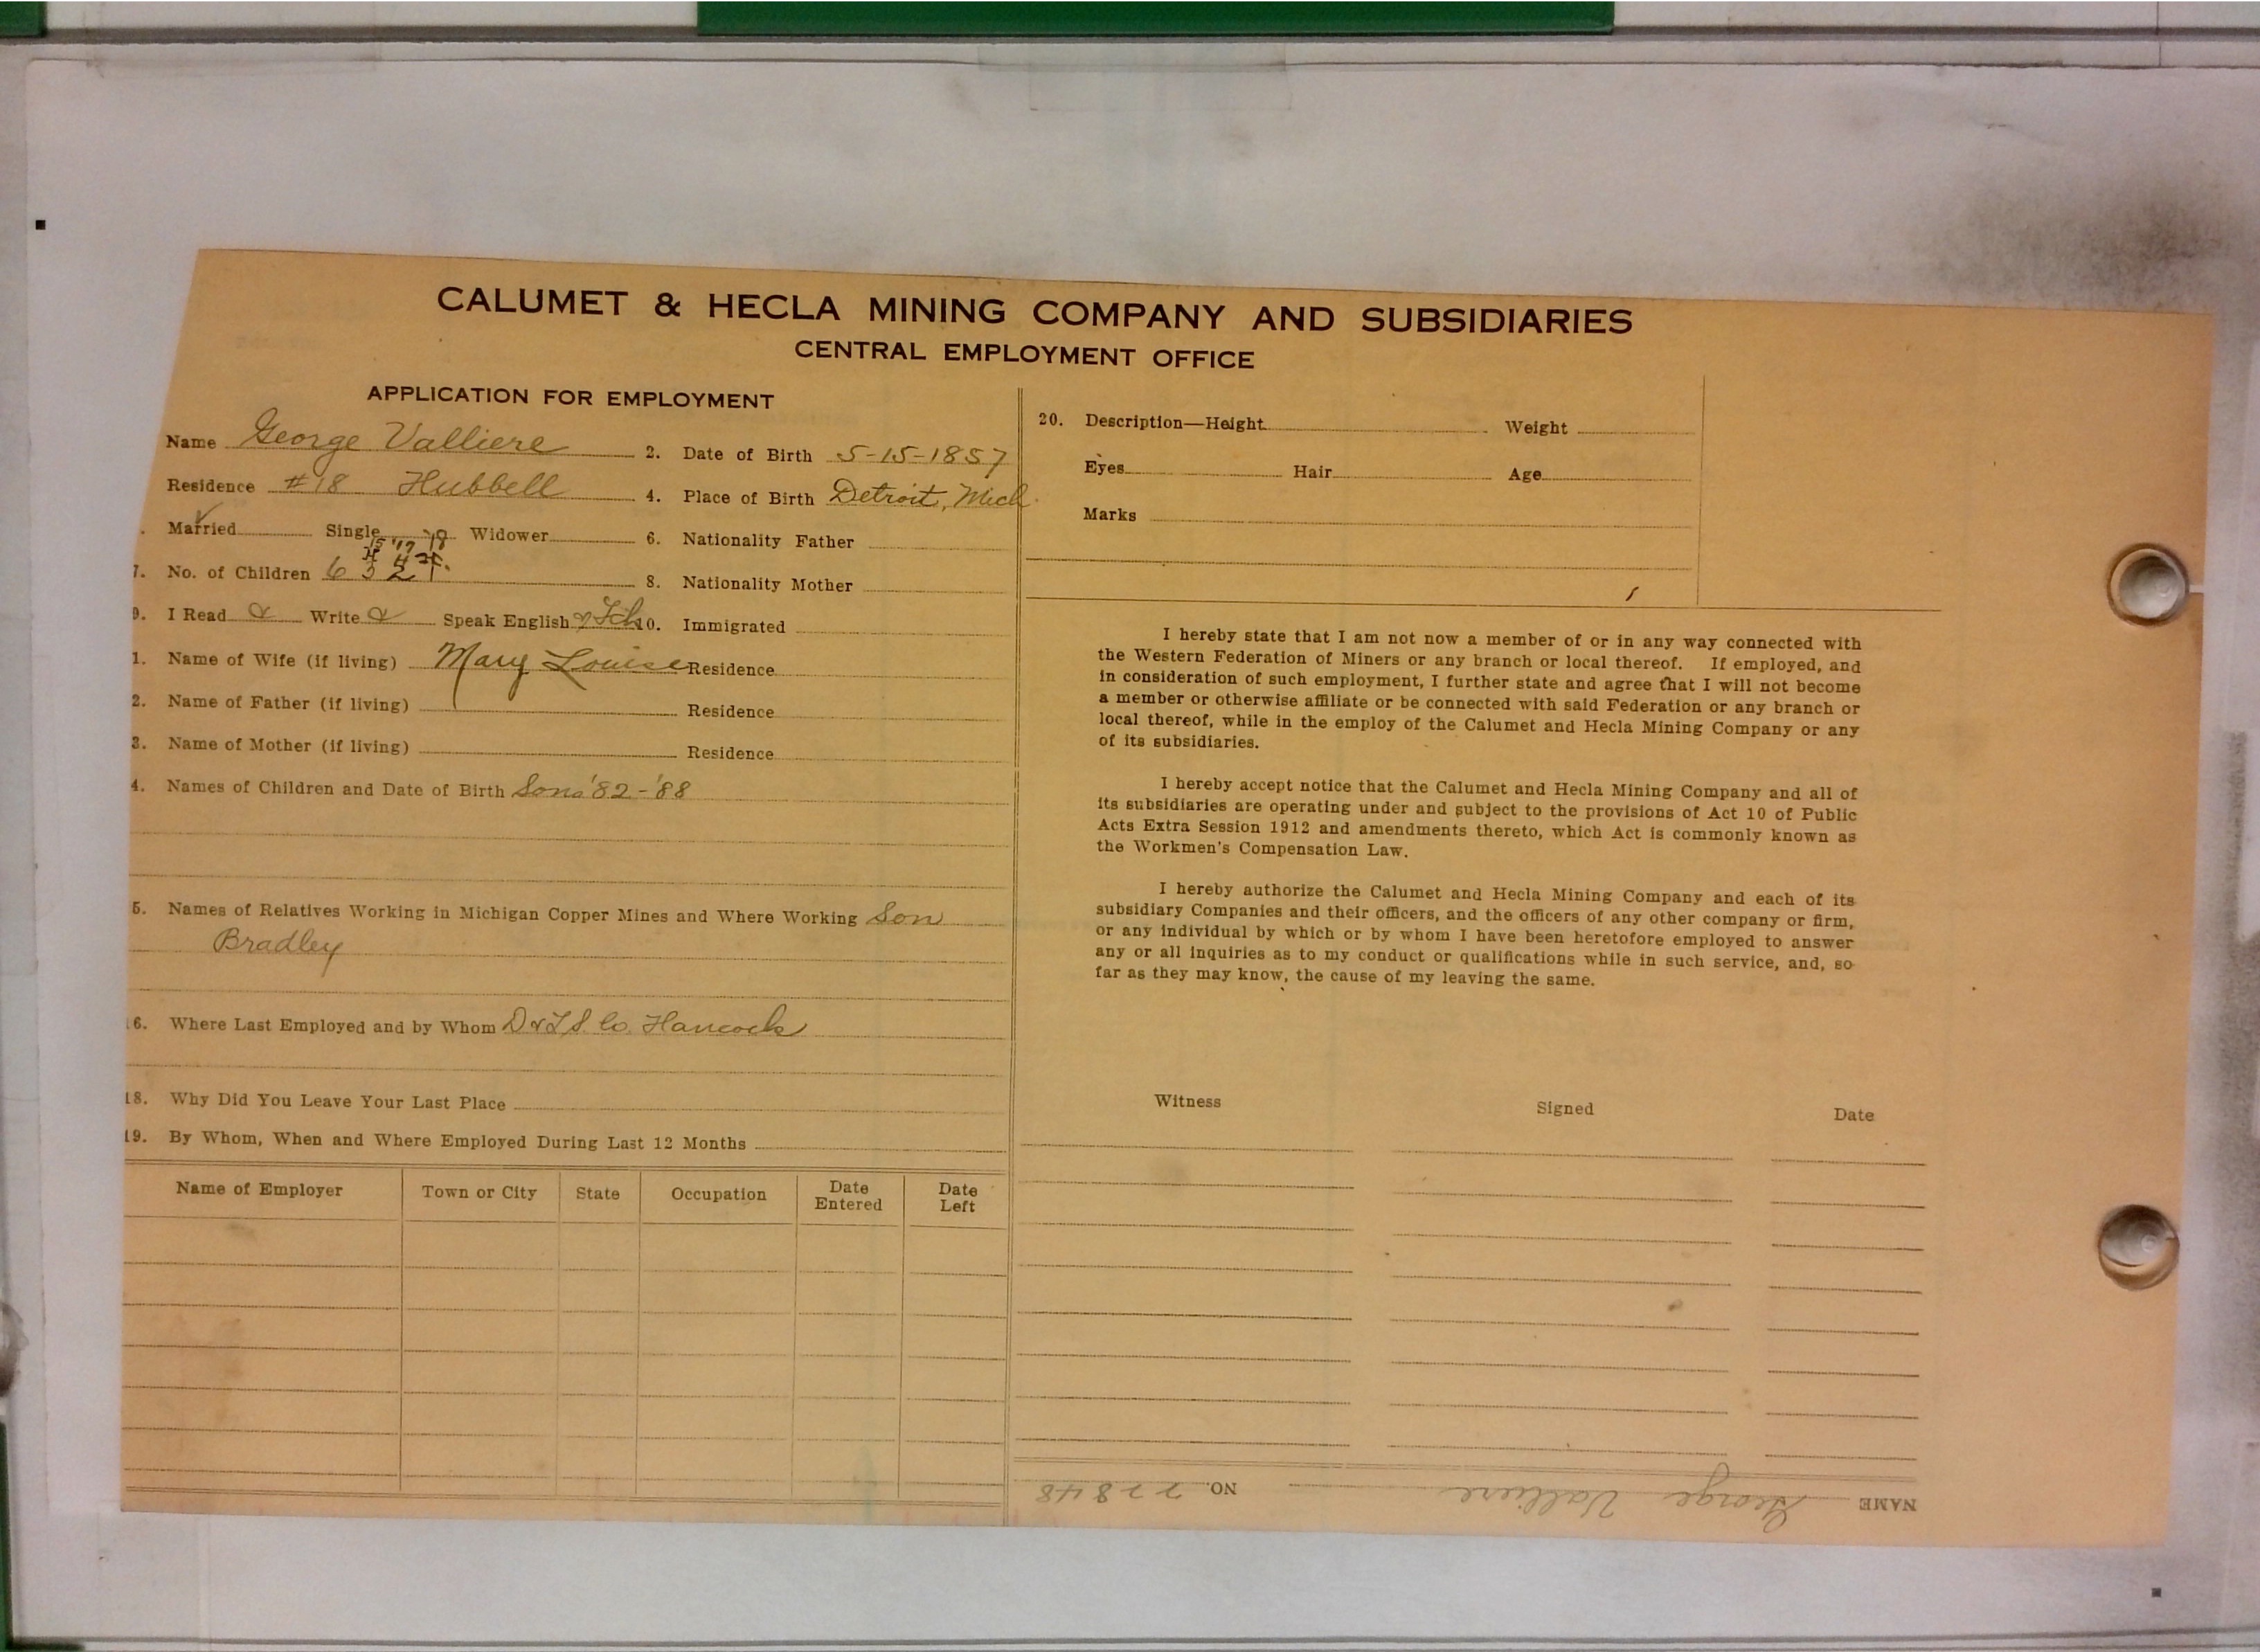 CALUMET & HECLA MINING COMPANY AND SUBSIDIARIES
CENTRAL EMPLOYMENT OFFICE
APPLICATION FOR EMPLOYMENT
Name George Valliere 2. Date of Birth 5-15-1857
Residence #18 Hubbell 4. Place of Birth Detroit, Mich.
. Married Single Widower 6. Nationality Father
15 '17 '18
7. No. of Children 6 3 2 8. Nationality Mother
9. I Read & Write & Speak English & Fch 10. Immigrated
1. Name of Wife (if living) Mary Louise Residence
2. Name of Father (if living) Residence
3. Name of Mother (if living) Residence
4. Names of Children and Date of Birth Sons '82-'88
5. Names of Relatives Working in Michigan Copper Mines and Where Working Son
Bradley
16. Where Last Employed and by Whom D & L S. Co. Hancock
18. Why Did You Leave Your Last Place
19. By Whom, When and Where Employed During Last 12 Months
Name of Employer Town or City State Occupation Date Entered Date Left
20. Description—Height Weight
Eyes Hair Age
Marks
I hereby state that I am not now a member of or in any way connected with
the Western Federation of Miners or any branch or local thereof. If employed, and
in consideration of such employment, I further state and agree that I will not become
a member or otherwise affiliate or be connected with said Federation or any branch or
local thereof, while in the employ of the Calumet and Hecla Mining Company or any
of its subsidiaries.
I hereby accept notice that the Calumet and Hecla Mining Company and all of
its subsidiaries are operating under and subject to the provisions of Act 10 of Public
Acts Extra Session 1912 and amendments thereto, which Act is commonly known as
the Workmen's Compensation Law.
I hereby authorize the Calumet and Hecla Mining Company and each of its
subsidiary Companies and their officers, and the officers of any other company or firm,
or any individual by which or by whom I have been heretofore employed to answer
any or all inquiries as to my conduct or qualifications while in such service, and, so
far as they may know, the cause of my leaving the same.
Witness Signed Date
NAME George Valliere NO. 22848